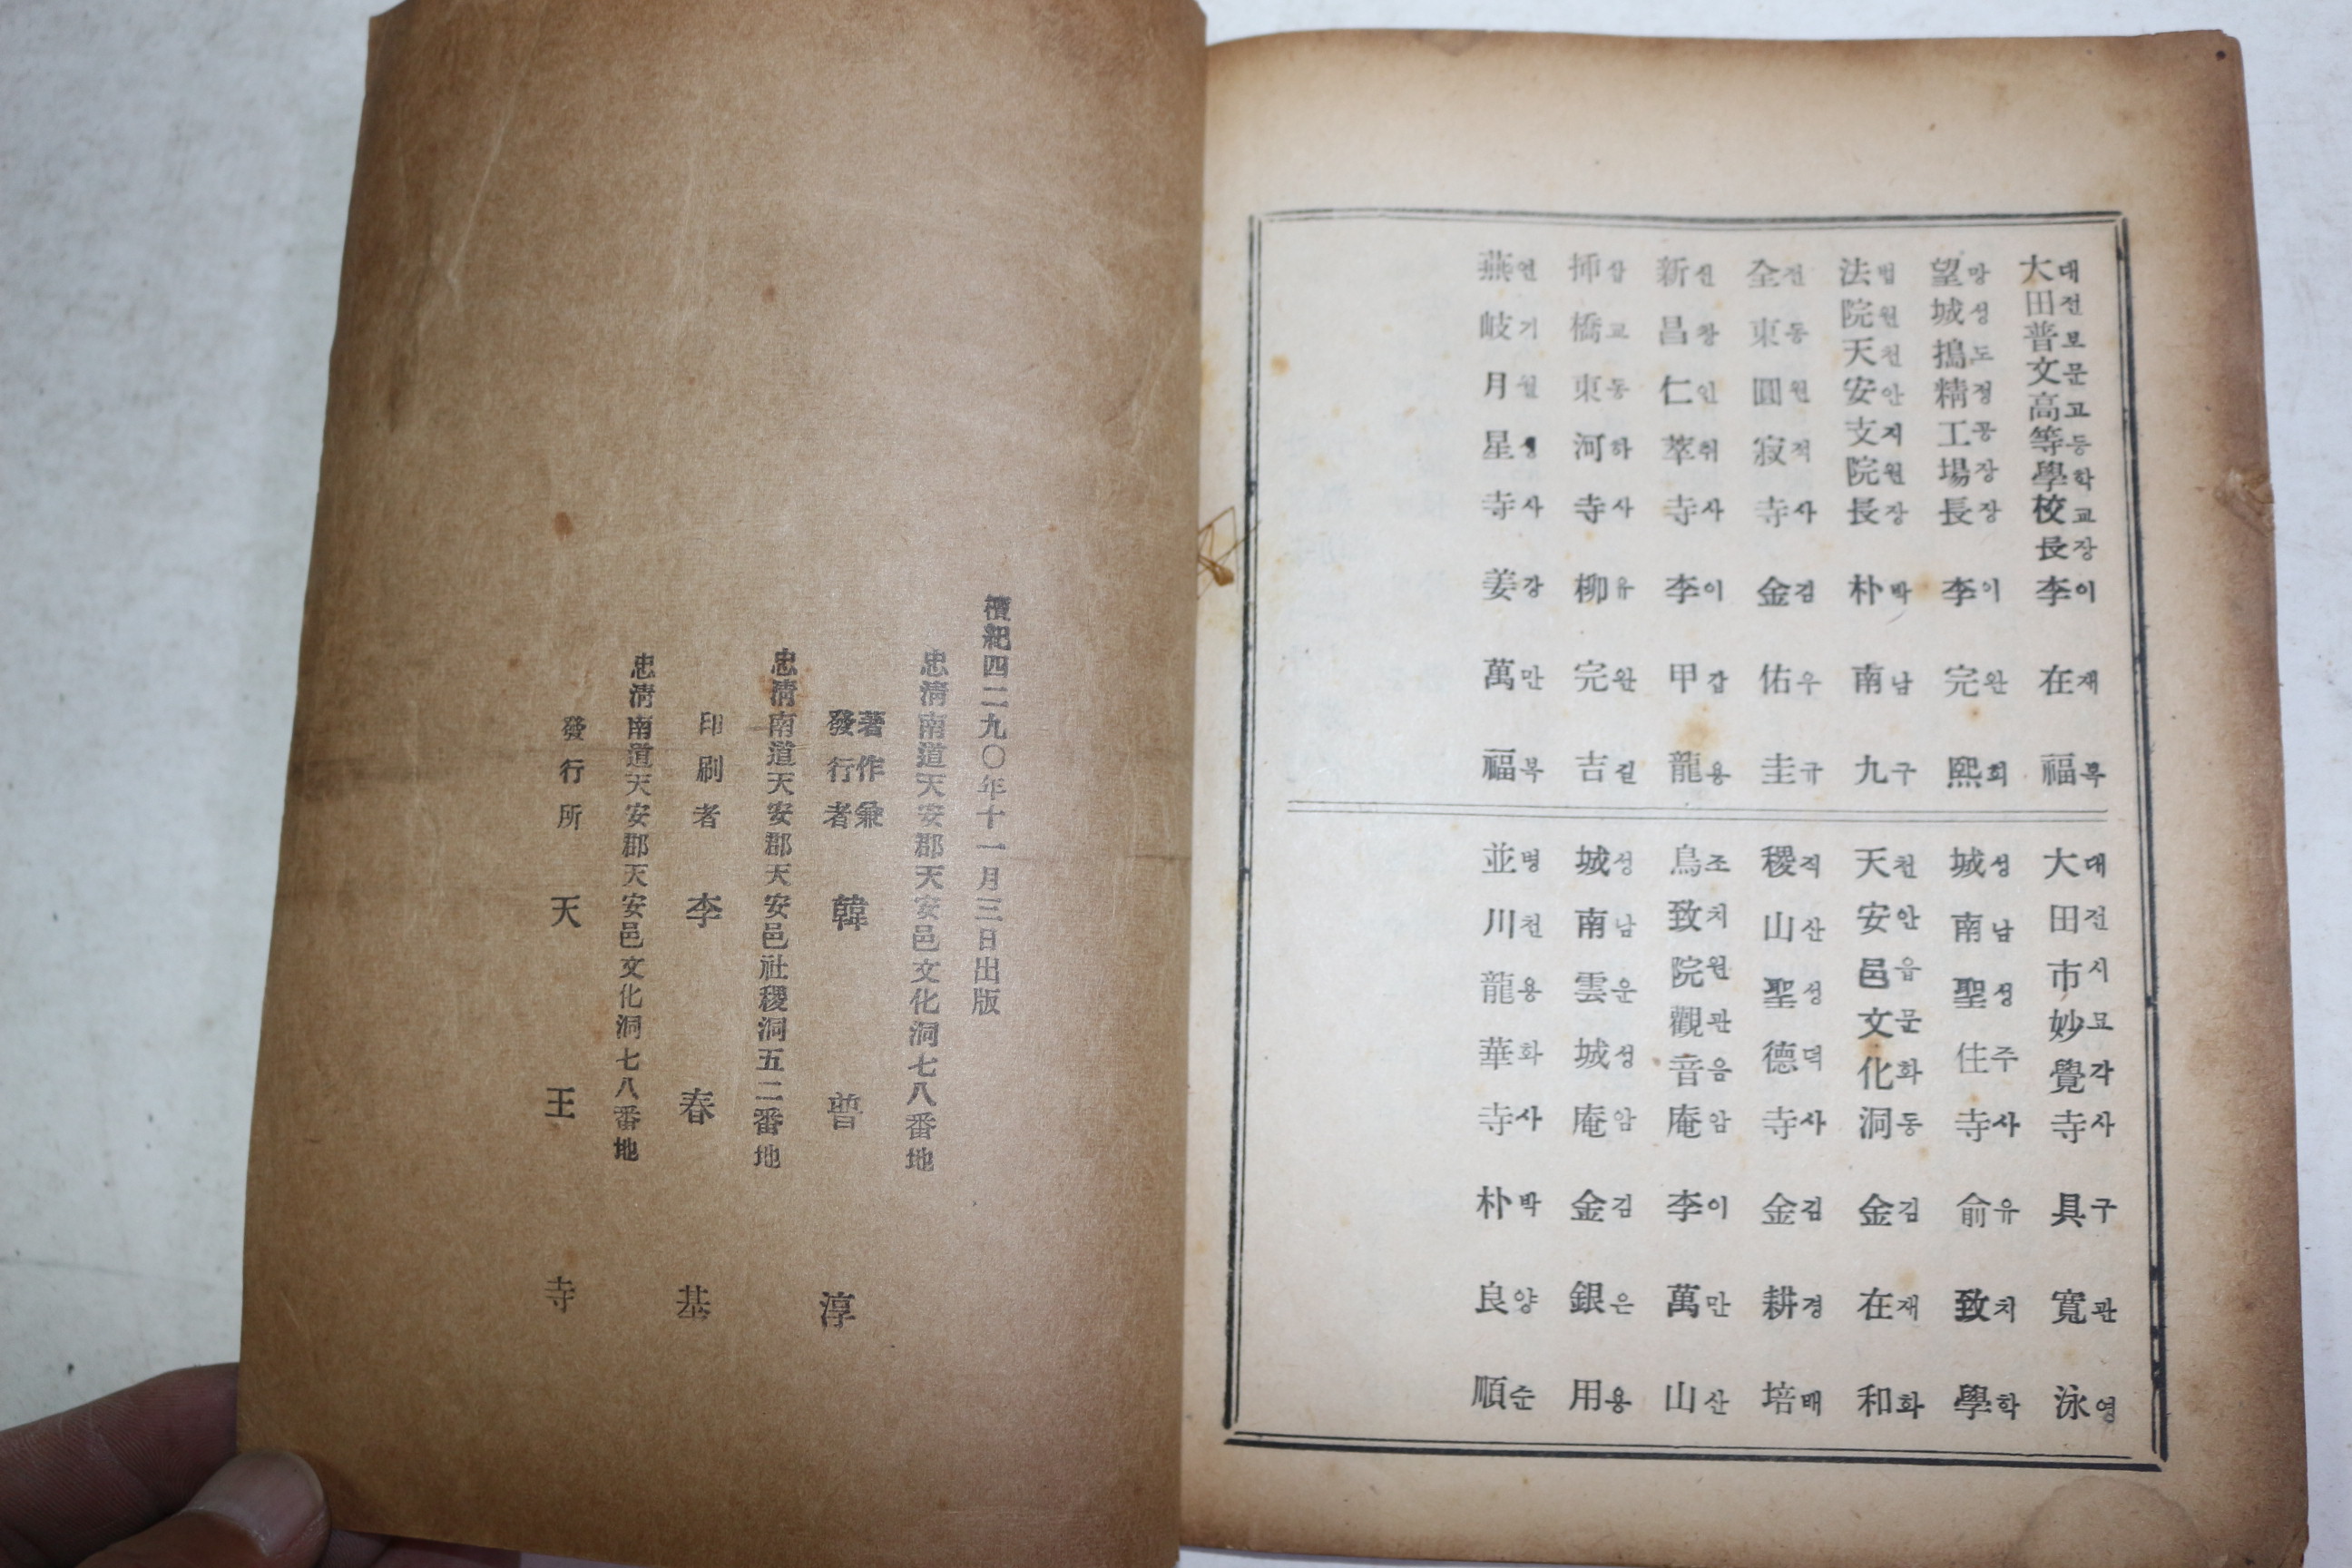 大대田전普보文문高고等등學학校교長장李이在재福복
望망城성搗도精정工공場장長장李이完완熙희
法법院원天천安안支지院원長장朴박南남九구
全전東동圓원寂적寺사金김佑우圭규
新신昌창仁인萃취寺사李이甲갑龍용
挿삽橋교東동河하寺사柳유完완吉길
燕연岐기月월星성寺사姜강萬만福복
大대田전市시妙묘覺각寺사具구寬관泳영
城성南남聖성住주寺사兪유致치學학
天천安안邑읍文문化화洞동金김在재和화
稷직山산聖성德덕寺사金김耕경培배
鳥조致치院원觀관音음庵암李이萬만山산
城성南남雲운城성庵암金김銀은用용
並병川천龍용華화寺사朴박良양順순
檀紀四二九〇年十一月三日出版
忠淸南道天安郡天安邑文化洞七八番地
著作兼
發行者 韓普淳
忠淸南道天安郡天安邑社稷洞五二番地
印刷者 李春基
忠淸南道天安郡天安邑文化洞七八番地
發行所 天王寺